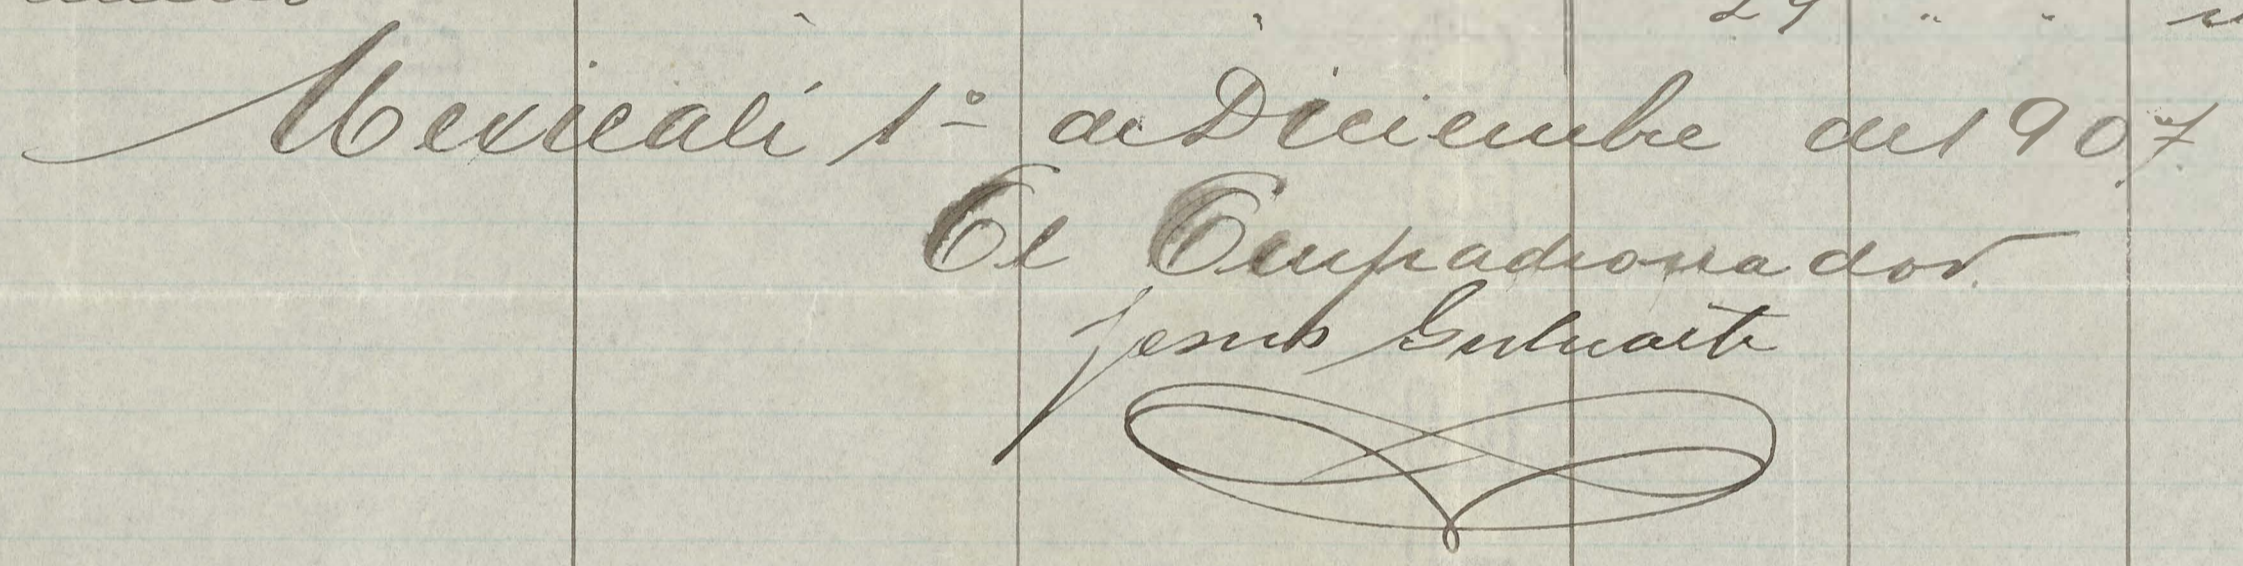 Mexicali 1º de Diciembre de 1907.
El Empadronador.
Jesus Guluarte